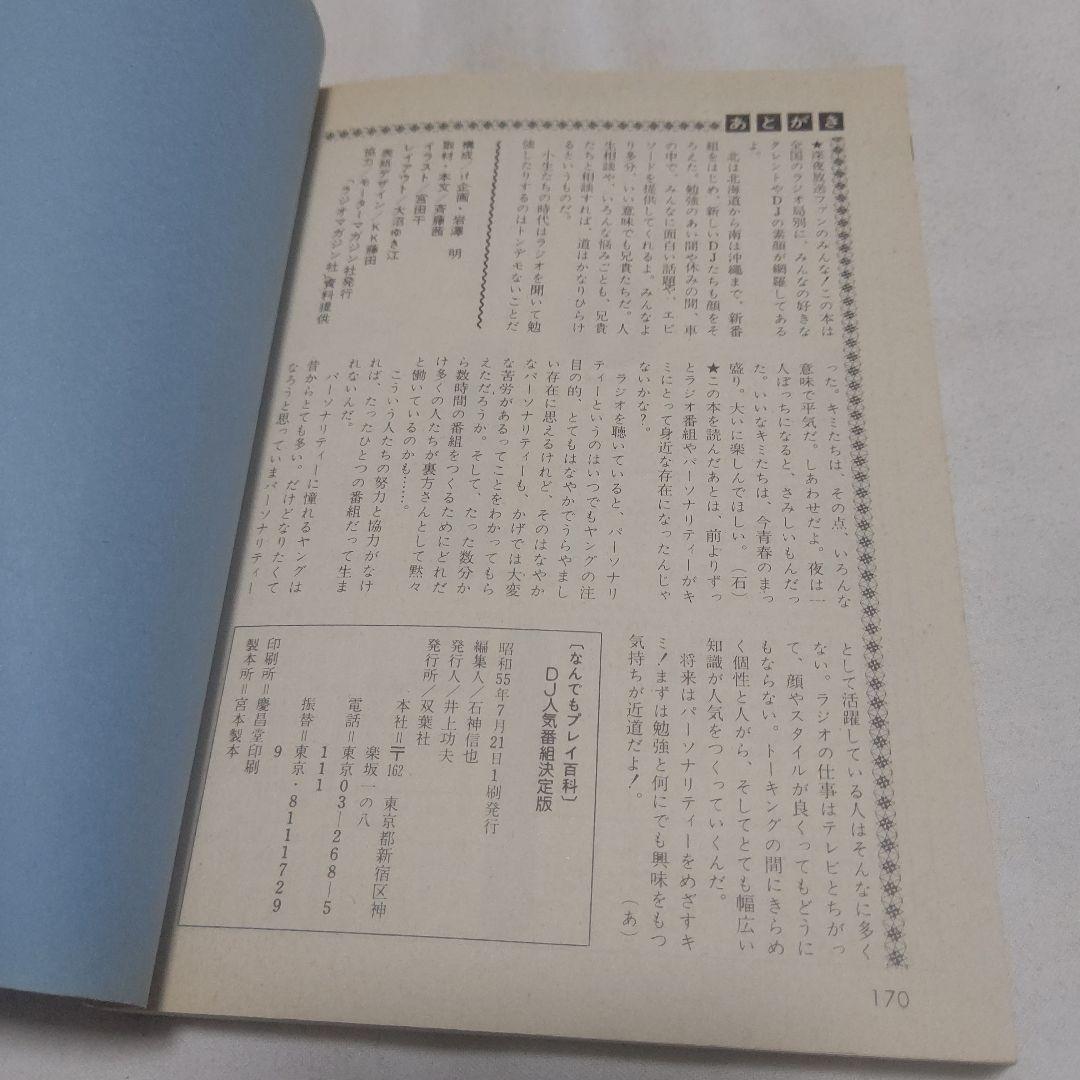 あとがき
★深夜放送ファンのみんな！この本は
全国のラジオ局別に、みんなの好きな
タレントやDJの素顔が網羅してある
よ。
北は北海道から南は沖縄まで、新番
組をはじめ、新しいDJたちも顔をそ
ろえた。勉強のあい間や休みの間、車
の中で、みんなに面白い話題や、エピ
ソードを提供してくれるよ。みんなよ
り多分、いい意味でも兄貴たちだ。人
生相談や、いろんな悩みごとも、兄貴
たちと相談すれば、道はかなりひらけ
るというものだ。
小生たちの時代はラジオを聞いて勉
強したりするのはトンデモないことだ
構成／if企画・岩澤　明
取材・本文／斉藤茜
イラスト／宮田干
レイアウト／大沼ゆき江
表紙デザイン／KK藤田
協力／モーターマガジン社発行
「ラジオマガジン社」資料提供
った。キミたちは、その点、いろんな
意味で平気だ。しあわせだよ。夜は一
人ぼっちになると、さみしいもんだっ
た。いいなキミたちは、今青春のまっ
盛り。大いに楽しんでほしい。（石）
★この本を読んだあとは、前よりずっ
とラジオ番組やパーソナリティーがキ
ミにとって身近な存在になったんじゃ
ないかな？。
ラジオを聴いていると、パーソナリ
ティーというのはいつでもヤングの注
目の的、とてもはなやかでうらやまし
い存在に思えるけれど、そのはなやか
なパーソナリティーも、かげでは大変
な苦労があるってことをわかってもら
えただろうか。そして、たった数分か
ら数時間の番組をつくるためにどれだ
け多くの人たちが裏方さんとして黙々
と働いているのかも……。
こういう人たちの努力と協力がなけ
れば、たったひとつの番組だって生ま
れないんだ。
パーソナリティーに憧れるヤングは
昔からとても多い。だけどなりたくて
なろうと思っていまパーソナリティー
として活躍している人はそんなに多く
ない。ラジオの仕事はテレビとちがっ
て、顔やスタイルが良くってもどうに
もならない。トーキングの間にきらめ
く個性と人がら、そしてとても幅広い
知識が人気をつくっていくんだ。
将来はパーソナリティーをめざすキ
ミ！まずは勉強と何にでも興味をもつ
気持ちが近道だよ！。
（あ）
〔なんでもプレイ百科〕
DJ人気番組決定版
昭和55年7月21日1刷発行
編集人／石神信也
発行人／井上功夫
発行所／双葉社
本社＝〒162　東京都新宿区神
楽坂一の八
電話＝東京03—268—5
111
振替＝東京・8111729
9
印刷所＝慶昌堂印刷
製本所＝宮本製本
170